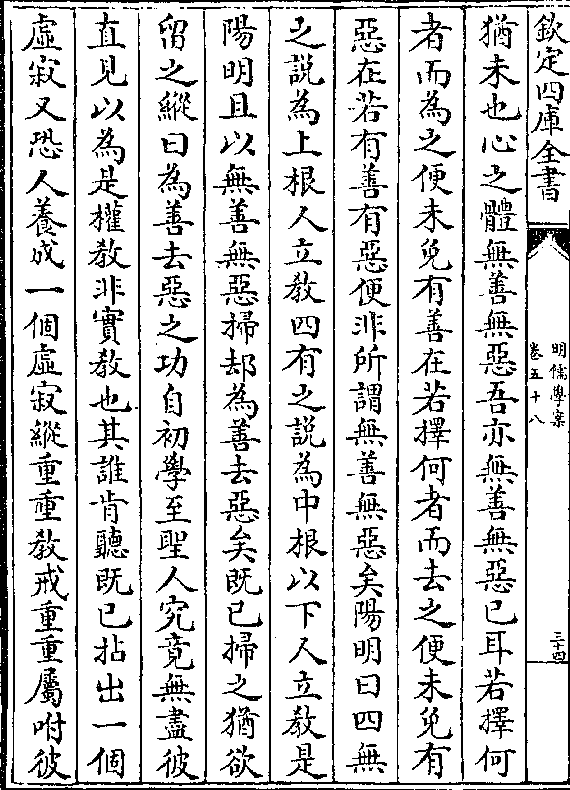 欽定四庫全書
明儒學案
卷五十八
三十四
猶未也心之體無善無惡吾亦無善無惡已耳若擇何
者而為之便未免有善在若擇何者而去之便未免有
惡在若有善有惡便非所謂無善無惡矣陽明曰四無
之説為上根人立教四有之説為中根以下人立教是
陽明且以無善無惡掃却為善去惡矣既已掃之猶欲
留之縱曰為善去惡之功自初學至聖人究竟無盡彼
直見以為是權教非實教也其誰肯聽既已拈出一個
虛寂又恐人養成一個虛寂縱重重教戒重重屬咐彼